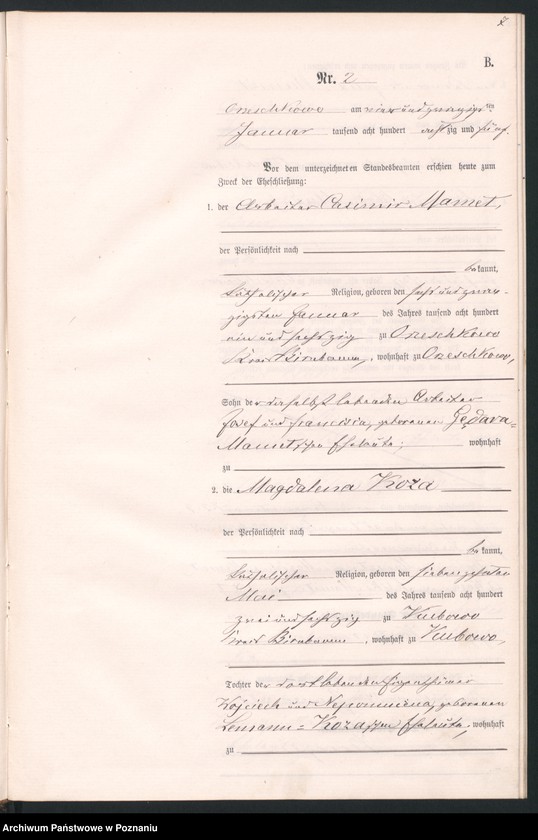 2
B.
Nr. 2
Orzeschkowo am vier und zwanzigsten
Januar tausend acht hundert achtzig und fünf.
Vor dem unterzeichneten Standesbeamten erschien heute zum
Zweck der Eheschließung:
1. der Arbeiter Casimir Mamet,
der Persönlichkeit nach
bekannt,
katholischer Religion, geboren den sechs und zwan-
zigsten Januar des Jahres tausend acht hundert
ein und sechszig zu Orzeschkowo
Kreis Birnbaum, wohnhaft zu Orzeschkowo,
Sohn der daselbst lebenden Arbeiter
Josef und Francisca, geborenen
Mamet'schen Eheleute; wohnhaft
zu
2. die Magdalena Koza
der Persönlichkeit nach
bekannt,
katholischer Religion, geboren den siebenzehnten
Mai des Jahres tausend acht hundert
zwei und sechszig zu Kubowo
Kreis Birnbaum, wohnhaft zu Kubowo,
Tochter der dort lebenden Eigenthümer
Wojciech und Nepomucena, geborenen
Lemann-Koza'schen Eheleute, wohnhaft
zu
Archiwum Państwowe w Poznaniu